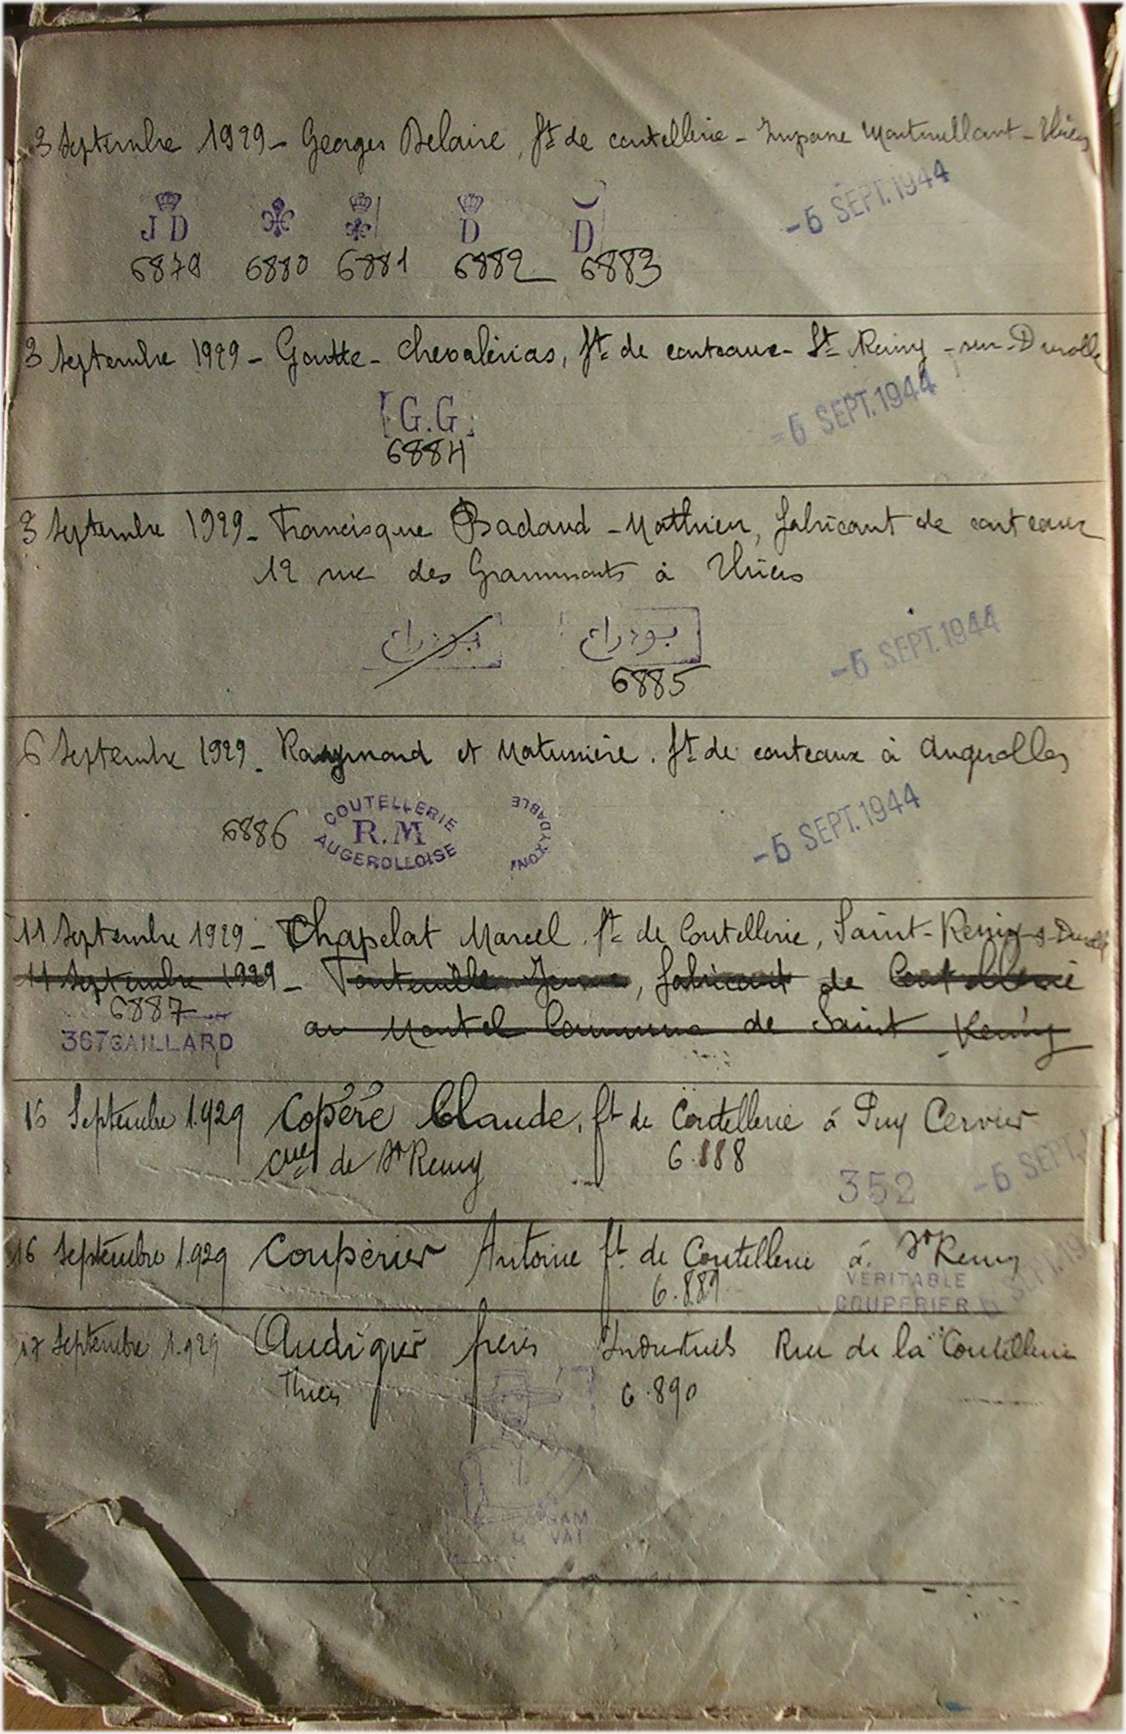 3 Septembre 1929 - Georges Delaire, ft de coutellerie - Impasse - Thiers
- 5 SEPT. 1944
J D D D
6879 6880 6881 6882 6883
3 Septembre 1929 - Goutte - Chevalérias, ft de couteaux - St Remy - sur - Durolle
- 5 SEPT. 1944
G.G
6884
3 Septembre 1929 - Francisque Badaud - Mathieu, fabricant de couteaux
12 rue des Grammonts à Thiers
بودراع بودراع
- 5 SEPT. 1944
6885
6 Septembre 1929 - Raymond et Matussière. ft de couteaux à Augerolles
6886 COUTELLERIE R.M AUGEROLLOISE INOXYDABLE
- 5 SEPT. 1944
11 Septembre 1929 - Chapelat Marcel. ft de Coutellerie, Saint - Remy - s - Durolle
11 Septembre 1929 - Jeune, fabricant de Coutellerie
6887
au Montel Commune de Saint Remy
367 GAILLARD
Septembre 1.929 Copéré Claude, ft de Coutellerie à Puy Cervier
cne de St Remy 6.888
352 - 5 SEPT.
16 Septembre 1.929 Coupérier Antoine ft de Coutellerie à St Remy
6.889
VERITABLE
COUPERIER
17 Septembre 1.929 Audigier frères Industriels Rue de la Coutellerie
Thiers 6.890